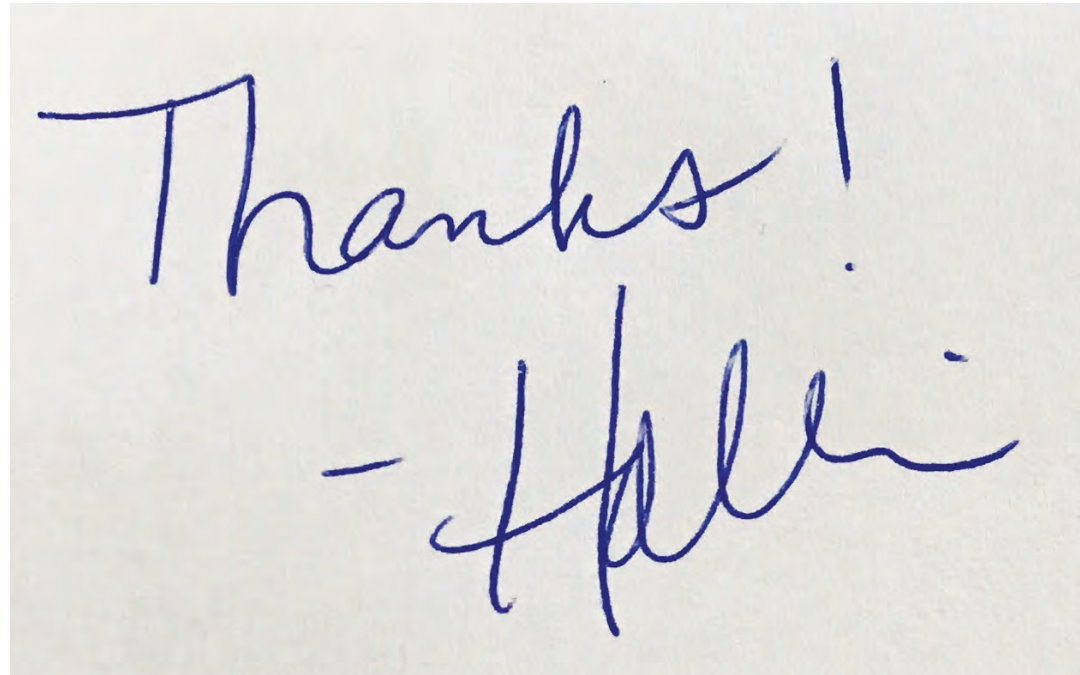 Thanks!
- Halli